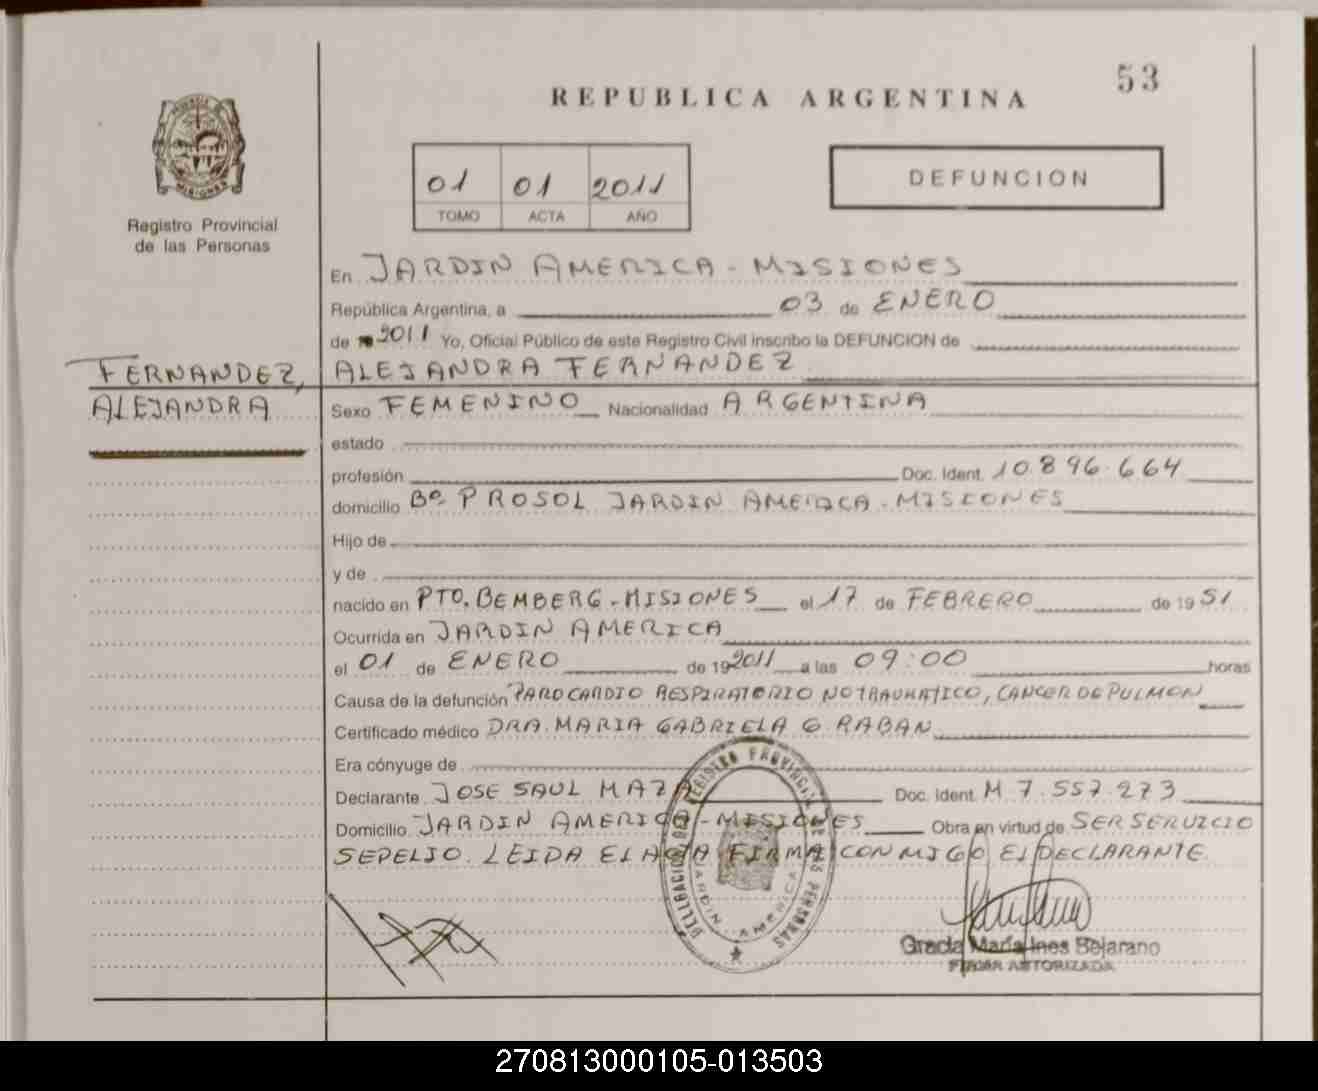 53
REPUBLICA ARGENTINA
MISIONES
Registro Provincial
de las Personas
01 01 2011
TOMO ACTA AÑO
DEFUNCION
En JARDIN AMERICA - MISIONES
República Argentina, a 03 de ENERO
de 2011 Yo, Oficial Público de este Registro Civil inscribo la DEFUNCION de
FERNANDEZ, ALEJANDRA FERNANDEZ
ALEJANDRA Sexo FEMENINO Nacionalidad ARGENTINA
estado
profesión Doc. Ident. 10.896.664
domicilio Bº PROSOL JARDIN AMERICA - MISIONES
Hijo de
y de
nacido en PTO. BEMBERG - MISIONES el 17 de FEBRERO de 1951
Ocurrida en JARDIN AMERICA
el 01 de ENERO de 19 2011 a las 09:00 horas
Causa de la defunción PARO CARDIO RESPIRATORIO NO TRAUMATICO, CANCER DE PULMON
Certificado médico DRA. MARIA GABRIELA G. RABAN
Era cónyuge de
Declarante JOSE SAUL MAZA Doc. Ident. M 7.557.273
Domicilio JARDIN AMERICA - MISIONES Obra en virtud de SER SERVICIO
SEPELIO. LEIDA EL ACTA FIRMA CONMIGO EL DECLARANTE
REGISTRO PROVINCIAL DE LAS PERSONAS
JARDIN AMERICA
Gracia María Ines Bejarano
FIRMA AUTORIZADA
270813000105-013503